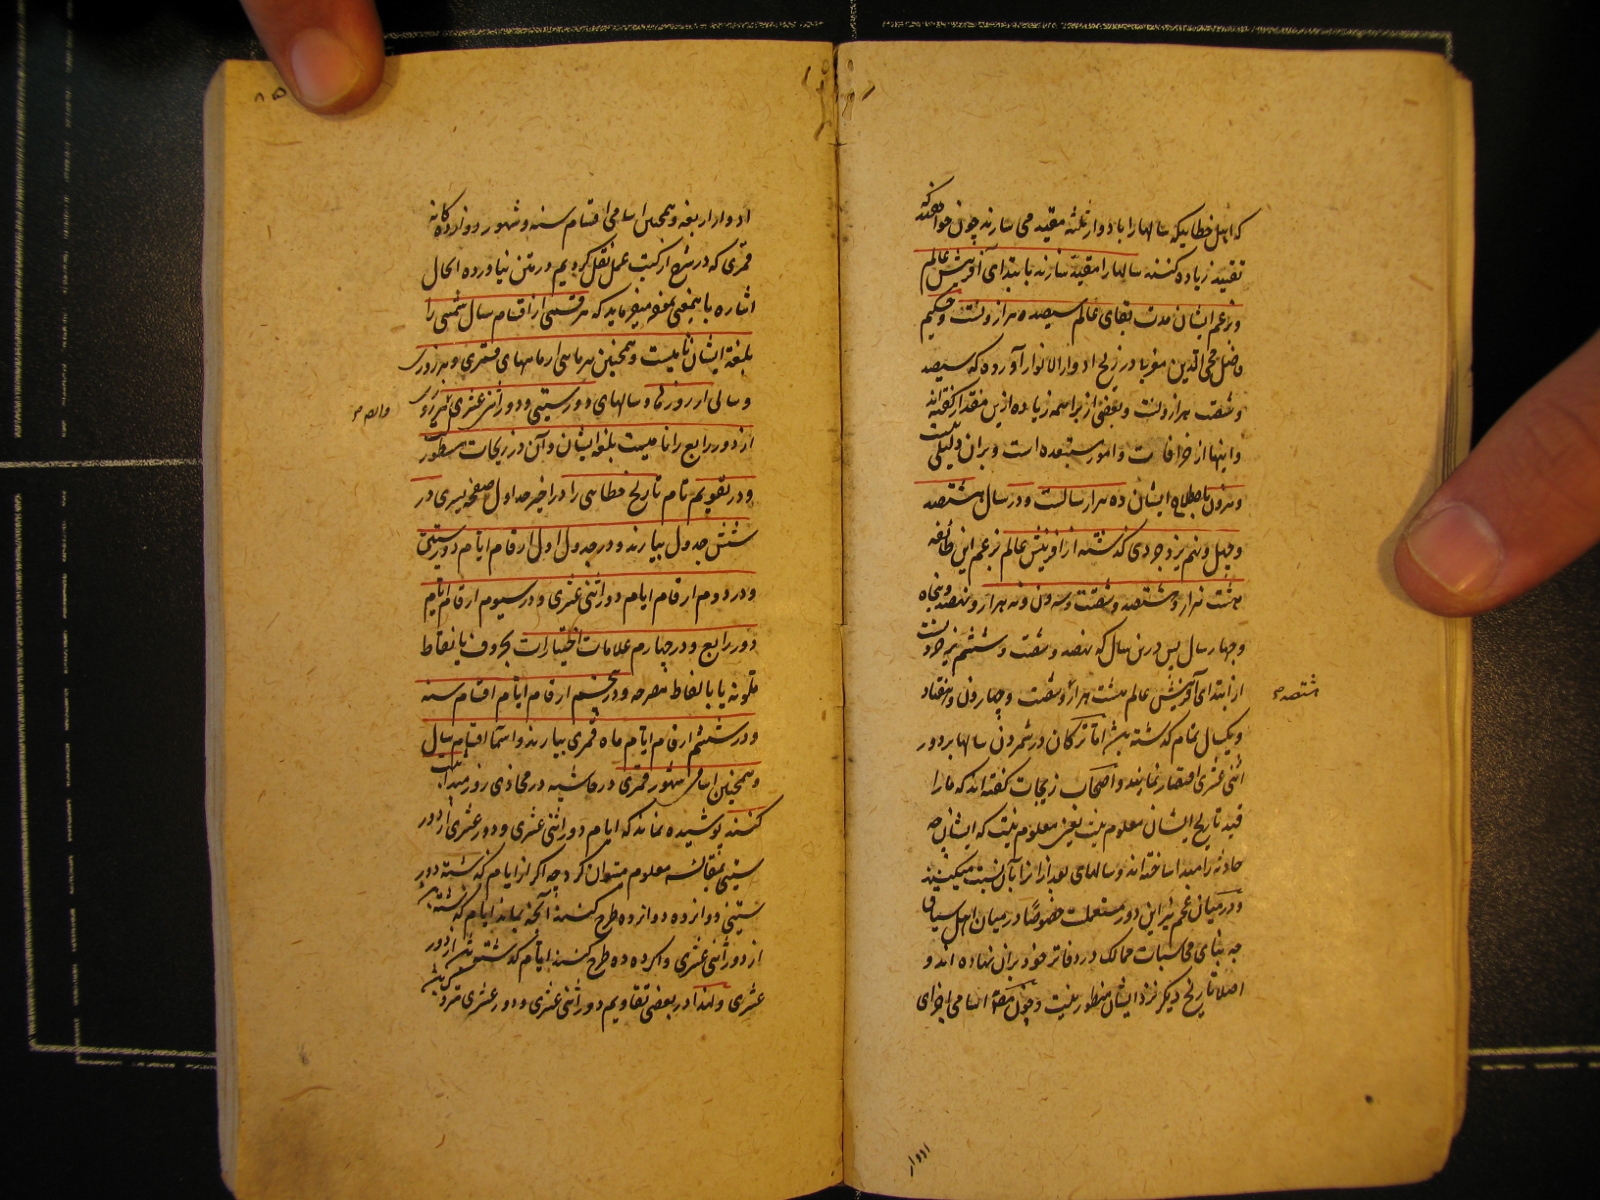 که اهل خطا بیکه سالها را بادوار ثلثه مقید می سازند چون خواهند که
تقیید زیاده کنند سالها را مقید سازند بابتدای آفرینش عالم
و بزعم ایشان مدت بقای عالم سیصد هزار ونست و حکیم
فاضل محی الدین مغربی در زیج ادوار الانوار آورده که سیصد
و شصت هزار ونست و بعضی از براسمه زیاده ازین مقدار گفته اند
و اینها از خرافات و امور مستبعده است و بران دلیلی نیست
و هر ون باصطلاح ایشان ده هزار سالست و در سال هشتصد
و چهل و نهم یزدجردی گذشته از آفرینش عالم بزعم این طائفه
هشت هزار و هشتصد و شصت و سه ون و نه هزار و نهصد و پنجاه
و چهار سال پس درین سال که نهصد و شصت و ششم یزدجردیست
از ابتدای آفرینش عالم هشت هزار و شصت و چهار ون و هفتاد
هشتصد
و یکسال تمام گذشته باشد اما ترکان در شمردن سالها بر دور
اثنی عشری اقتصار نمایند و اصحاب زیجات گفته اند که ما را
قید تاریخ ایشان معلوم نیست یعنی معلوم نیست که ایشان چه
حادثه را مبدا ساخته اند و سالهای بعد از انرا بآن نسبت میکنند
و در میان عجم نیز این دور مستعملست خصوصا در میان اهل سیاق
چه بنای محاسبات ممالک در دفاتر خود بران نهاده اند و
اصلا تاریخ دیگر نزد ایشان منظور نیست و چون اسامی اجزای
ادوار
۸۵
ادوار اربعه و همچنین اسامی اقسام سنه و شهور دوازده کانه
قمری که در شرح از کتب عمل نقل کردیم در متن نیاورده الحال
اشاره باینمعنی نموده میفرماید که هر قسمی از اقسام سال شمسی را
بلغة ایشان نامیست و همچنین هر ماهی از ماههای قمری و هر روزی
و سالی از روزها و سالهای دور ستینی و دور اثنی عشری هر روزی
والله
از دور رابع را نامیست بلغة ایشان و آن در زیجات مسطور
و در تقویم تام تاریخ خطایی را در اخیر جداول صفحه یسری در
شش جدول بیارند و در جدول اول ارقام ایام دور ستینی
و در دوم ارقام ایام دور اثنی عشری و در سیوم ارقام ایام
دور رابع و در چهارم علامات اختیارات بحروف یا نقاط
ملونه یا بالفاظ مصرحه و در پنجم ارقام ایام اقسام سنه
و در ششم ارقام ایام ماه قمری بیارند و اسماء اقسام سال
و همچنین اسامی شهور قمری در حاشیه در محاذی روز مبدا
کنند پوشیده نماند که ایام دور اثنی عشری و دور عشری از دور
ستینی معلوم میتوان کرد چه اگر از ایام گذشته دور
ستینی دوازده دوازده طرح کنند آنچه بماند ایام گذشته باشد
از دور اثنی عشری و اگر ده ده طرح کنند ایام گذشته از دور
عشری و لهذا در بعضی تقاویم دور اثنی عشری و دور عشری